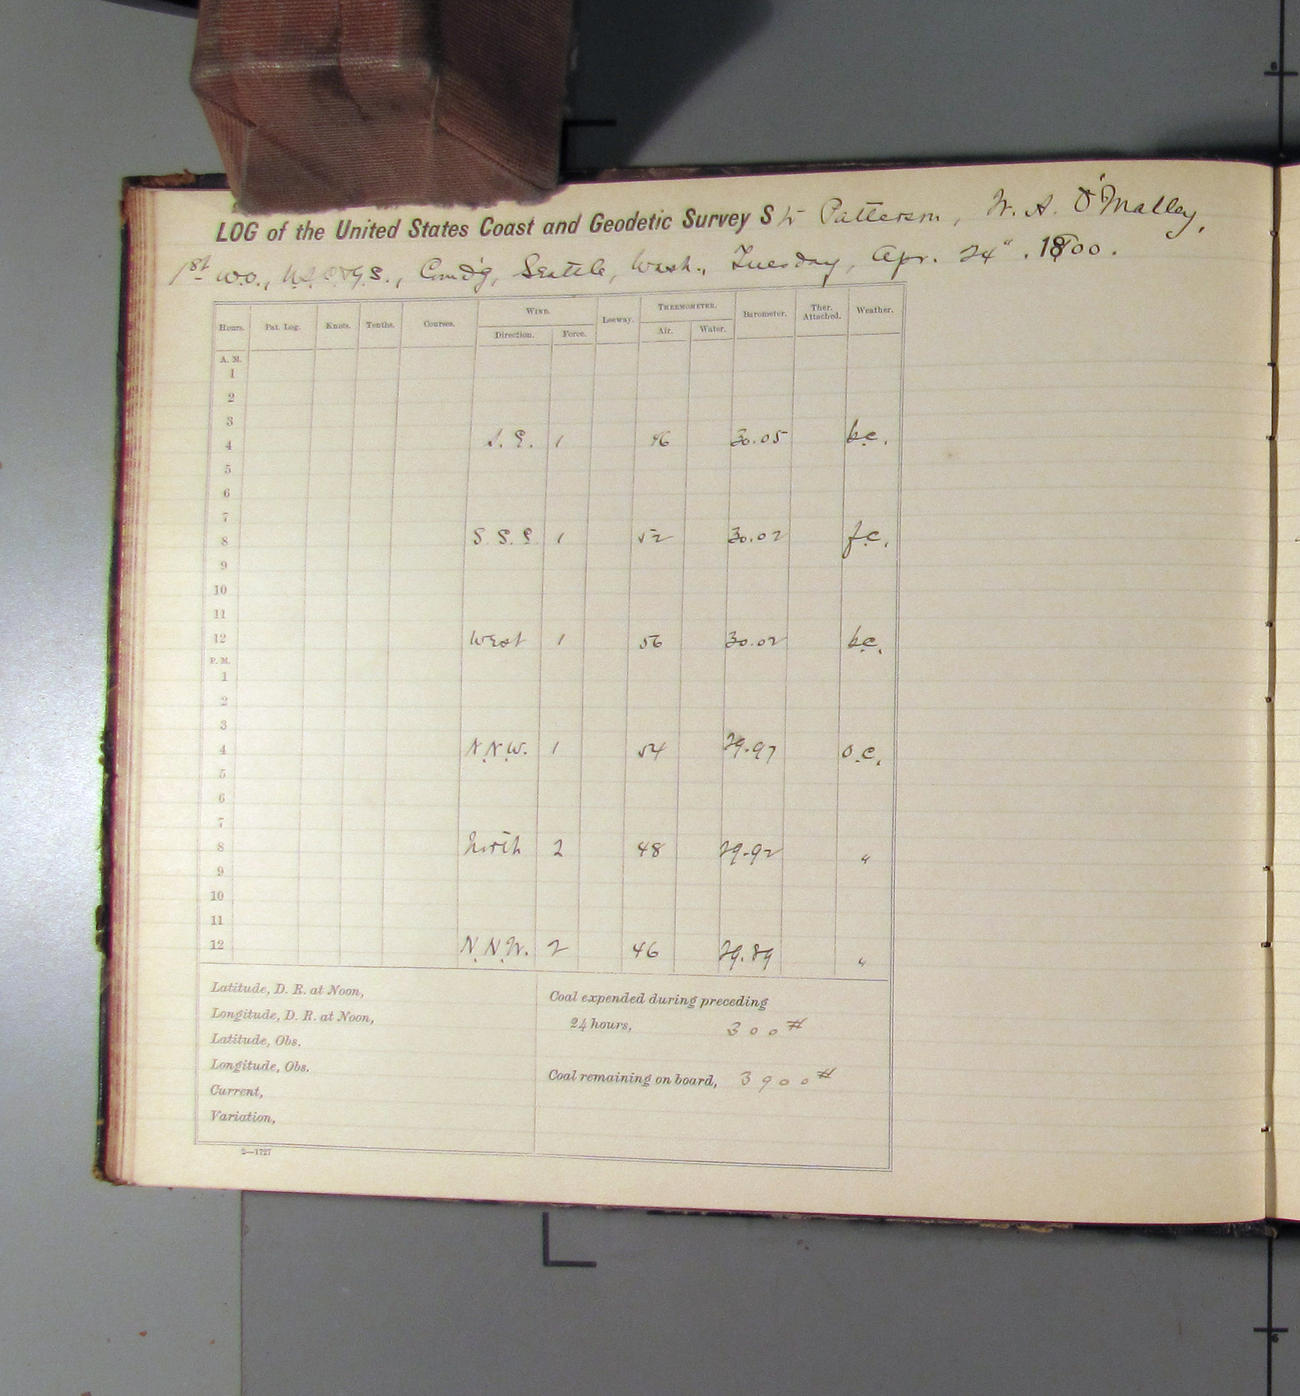 LOG of the United States Coast and Geodetic Survey Str Patterson, W. A. O'Malley,
1st W.O., U.S.C.&G.S., Comd'g, Seattle, Wash., Tuesday, Apr. 24", 1900.
Hours. Pat. Log. Knots. Tenths. Courses. Wind. Direction. Force. Leeway. Thermometer. Air. Water. Barometer. Ther. Attached. Weather.
A. M.
1
2
3
4 S. E. 1 46 30.05 b.c.
5
6
7
8 S. S. E 1 52 30.02 f.c.
9
10
11
12 West 1 56 30.02 b.c.
P. M.
1
2
3
4 N.N.W. 1 54 29.97 o.c.
5
6
7
8 North 2 48 29.92 "
9
10
11
12 N.N.W. 2 46 29.89 "
Latitude, D. R. at Noon,
Longitude, D. R. at Noon,
Latitude, Obs.
Longitude, Obs.
Current,
Variation,
Coal expended during preceding
24 hours, 300#
Coal remaining on board, 3900#
2—1727